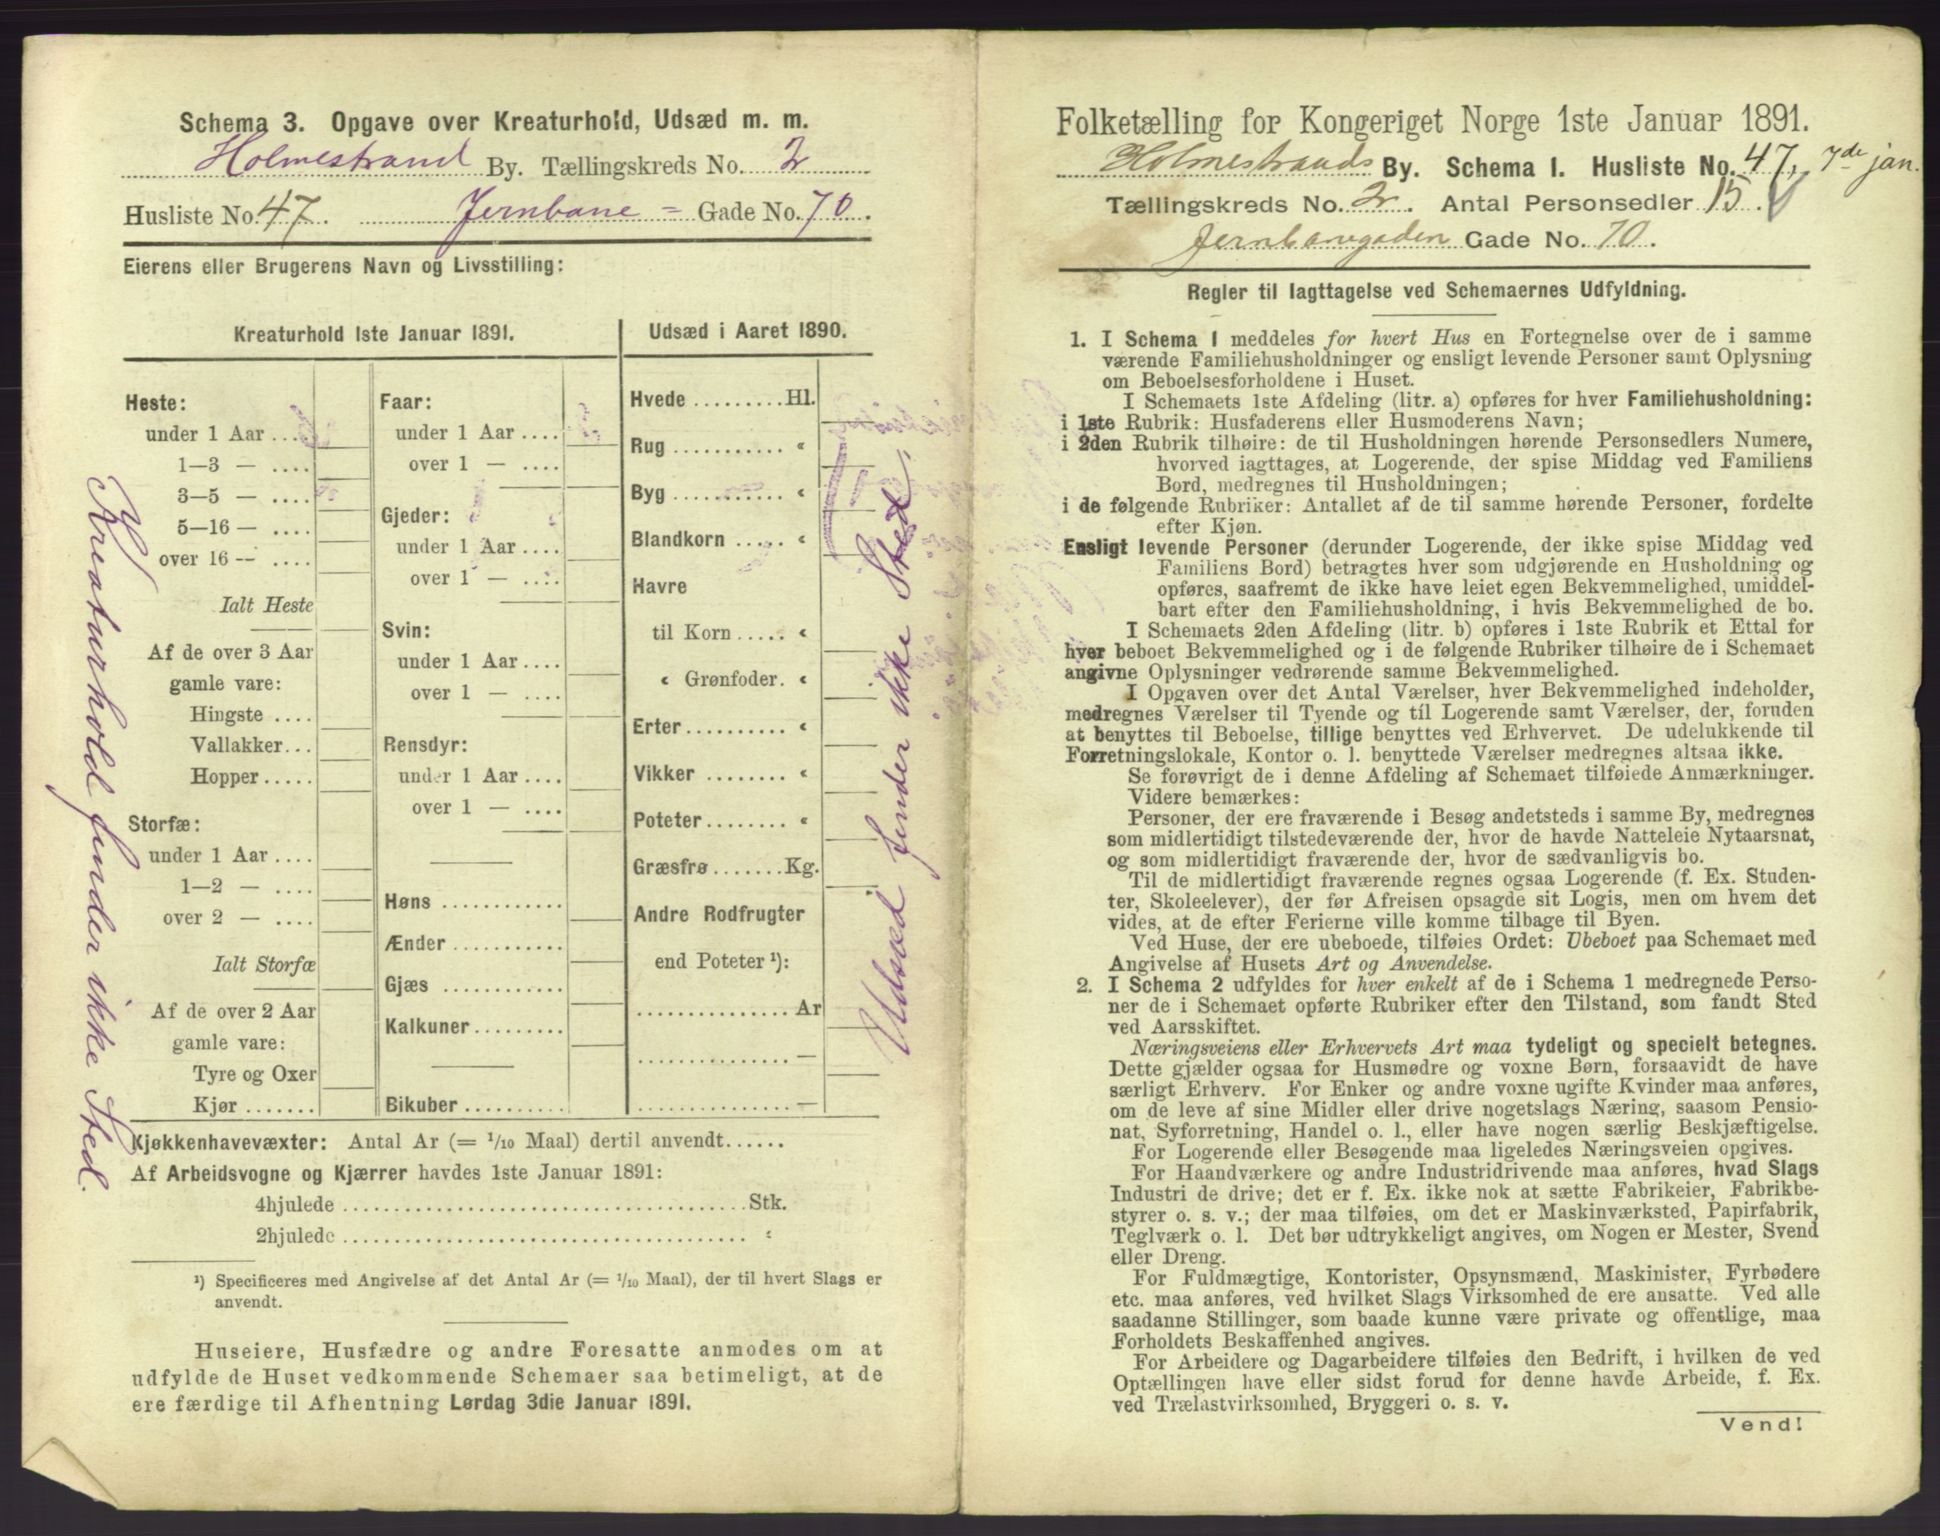 Schema 3. Opgave over Kreaturhold, Udsæd m. m.
Holmestrand By. Tællingskreds No. 2
Husliste No. 47. Jernbane = Gade No. 70.
Eierens eller Brugerens Navn og Livsstilling:
Kreaturhold 1ste Januar 1891.
Heste:
under 1 Aar ....
1—3 — ....
3—5 — ....
5—16 — ....
over 16 — ....
Ialt Heste
Af de over 3 Aar
gamle vare:
Hingste ....
Vallakker...
Hopper.....
Storfæ:
under 1 Aar ....
1—2 — ....
over 2 — ....
Ialt Storfæ
Af de over 2 Aar
gamle vare:
Tyre og Oxer
Kjør .......
Faar:
under 1 Aar ....
over 1 — ....
Gjeder:
under 1 Aar ....
over 1 — ....
Svin:
under 1 Aar ....
over 1 — ....
Rensdyr:
under 1 Aar ....
over 1 — ....
Høns ............
Ænder ...........
Gjæs ............
Kalkuner.........
Bikuber ..........
Udsæd i Aaret 1890.
Hvede .........Hl.
Rug ........... «
Byg ........... «
Blandkorn ..... «
Havre
til Korn ..... «
« Grønfoder. «
Erter.......... «
Vikker ........ «
Poteter........ «
Græsfrø .......Kg.
Andre Rodfrugter
end Poteter ¹):
............... Ar
............... —
............... —
Kreaturhold finder ikke Sted.
Udsæd finder ikke Sted.
Kjøkkenhavevæxter: Antal Ar (= 1/10 Maal) dertil anvendt......
Af Arbeidsvogne og Kjærrer havdes 1ste Januar 1891:
4hjulede ..................................... Stk.
2hjulede ..................................... «
¹) Specificeres med Angivelse af det Antal Ar (= 1/10 Maal), der til hvert Slags er
anvendt.
Huseiere, Husfædre og andre Foresatte anmodes om at
udfylde de Huset vedkommende Schemaer saa betimeligt, at de
ere færdige til Afhentning Lørdag 3die Januar 1891.
Folketælling for Kongeriget Norge 1ste Januar 1891.
Holmestrands By. Schema 1. Husliste No. 47, 7de jan.
Tællingskreds No. 2. Antal Personsedler 15.
Jernbanegaden Gade No. 70.
Regler til Iagttagelse ved Schemaernes Udfyldning.
1. I Schema 1 meddeles for hvert Hus en Fortegnelse over de i samme
værende Familiehusholdninger og ensligt levende Personer samt Oplysning
om Beboelsesforholdene i Huset.
I Schemaets 1ste Afdeling (litr. a) opføres for hver Familiehusholdning:
i 1ste Rubrik: Husfaderens eller Husmoderens Navn;
i 2den Rubrik tilhøire: de til Husholdningen hørende Personsedlers Numere,
hvorved iagttages, at Logerende, der spise Middag ved Familiens
Bord, medregnes til Husholdningen;
i de følgende Rubriker: Antallet af de til samme hørende Personer, fordelte
efter Kjøn.
Ensligt levende Personer (derunder Logerende, der ikke spise Middag ved
Familiens Bord) betragtes hver som udgjørende en Husholdning og
opføres, saafremt de ikke have leiet egen Bekvemmelighed, umiddel-
bart efter den Familiehusholdning, i hvis Bekvemmelighed de bo.
I Schemaets 2den Afdeling (litr. b) opføres i 1ste Rubrik et Ettal for
hver beboet Bekvemmelighed og i de følgende Rubriker tilhøire de i Schemaet
angivne Oplysninger vedrørende samme Bekvemmelighed.
I Opgaven over det Antal Værelser, hver Bekvemmelighed indeholder,
medregnes Værelser til Tyende og til Logerende samt Værelser, der, foruden
at benyttes til Beboelse, tillige benyttes ved Erhvervet. De udelukkende til
Forretningslokale, Kontor o. l. benyttede Værelser medregnes altsaa ikke.
Se forøvrigt de i denne Afdeling af Schemaet tilføiede Anmærkninger.
Videre bemærkes:
Personer, der ere fraværende i Besøg andetsteds i samme By, medregnes
som midlertidigt tilstedeværende der, hvor de havde Natteleie Nytaarsnat,
og som midlertidigt fraværende der, hvor de sædvanligvis bo.
Til de midlertidigt fraværende regnes ogsaa Logerende (f. Ex. Studen-
ter, Skoleelever), der før Afreisen opsagde sit Logis, men om hvem det
vides, at de efter Ferierne ville komme tilbage til Byen.
Ved Huse, der ere ubeboede, tilføies Ordet: Ubeboet paa Schemaet med
Angivelse af Husets Art og Anvendelse.
2. I Schema 2 udfyldes for hver enkelt af de i Schema 1 medregnede Perso-
ner de i Schemaet opførte Rubriker efter den Tilstand, som fandt Sted
ved Aarsskiftet.
Næringsveiens eller Erhvervets Art maa tydeligt og specielt betegnes.
Dette gjælder ogsaa for Husmødre og voxne Børn, forsaavidt de have
særligt Erhverv. For Enker og andre voxne ugifte Kvinder maa anføres,
om de leve af sine Midler eller drive nogetslags Næring, saasom Pensio-
nat, Syforretning, Handel o. l., eller have nogen særlig Beskjæftigelse.
For Logerende eller Besøgende maa ligeledes Næringsveien opgives.
For Haandværkere og andre Industridrivende maa anføres, hvad Slags
Industri de drive; det er f. Ex. ikke nok at sætte Fabrikeier, Fabrikbe-
styrer o. s. v.; der maa tilføies, om det er Maskinværksted, Papirfabrik,
Teglværk o. l. Det bør udtrykkeligt angives, om Nogen er Mester, Svend
eller Dreng.
For Fuldmægtige, Kontorister, Opsynsmænd, Maskinister, Fyrbødere
etc. maa anføres, ved hvilket Slags Virksomhed de ere ansatte. Ved alle
saadanne Stillinger, som baade kunne være private og offentlige, maa
Forholdets Beskaffenhed angives.
For Arbeidere og Dagarbeidere tilføies den Bedrift, i hvilken de ved
Optællingen have eller sidst forud for denne havde Arbeide, f. Ex.
ved Trælastvirksomhed, Bryggeri o. s. v.
Vend!